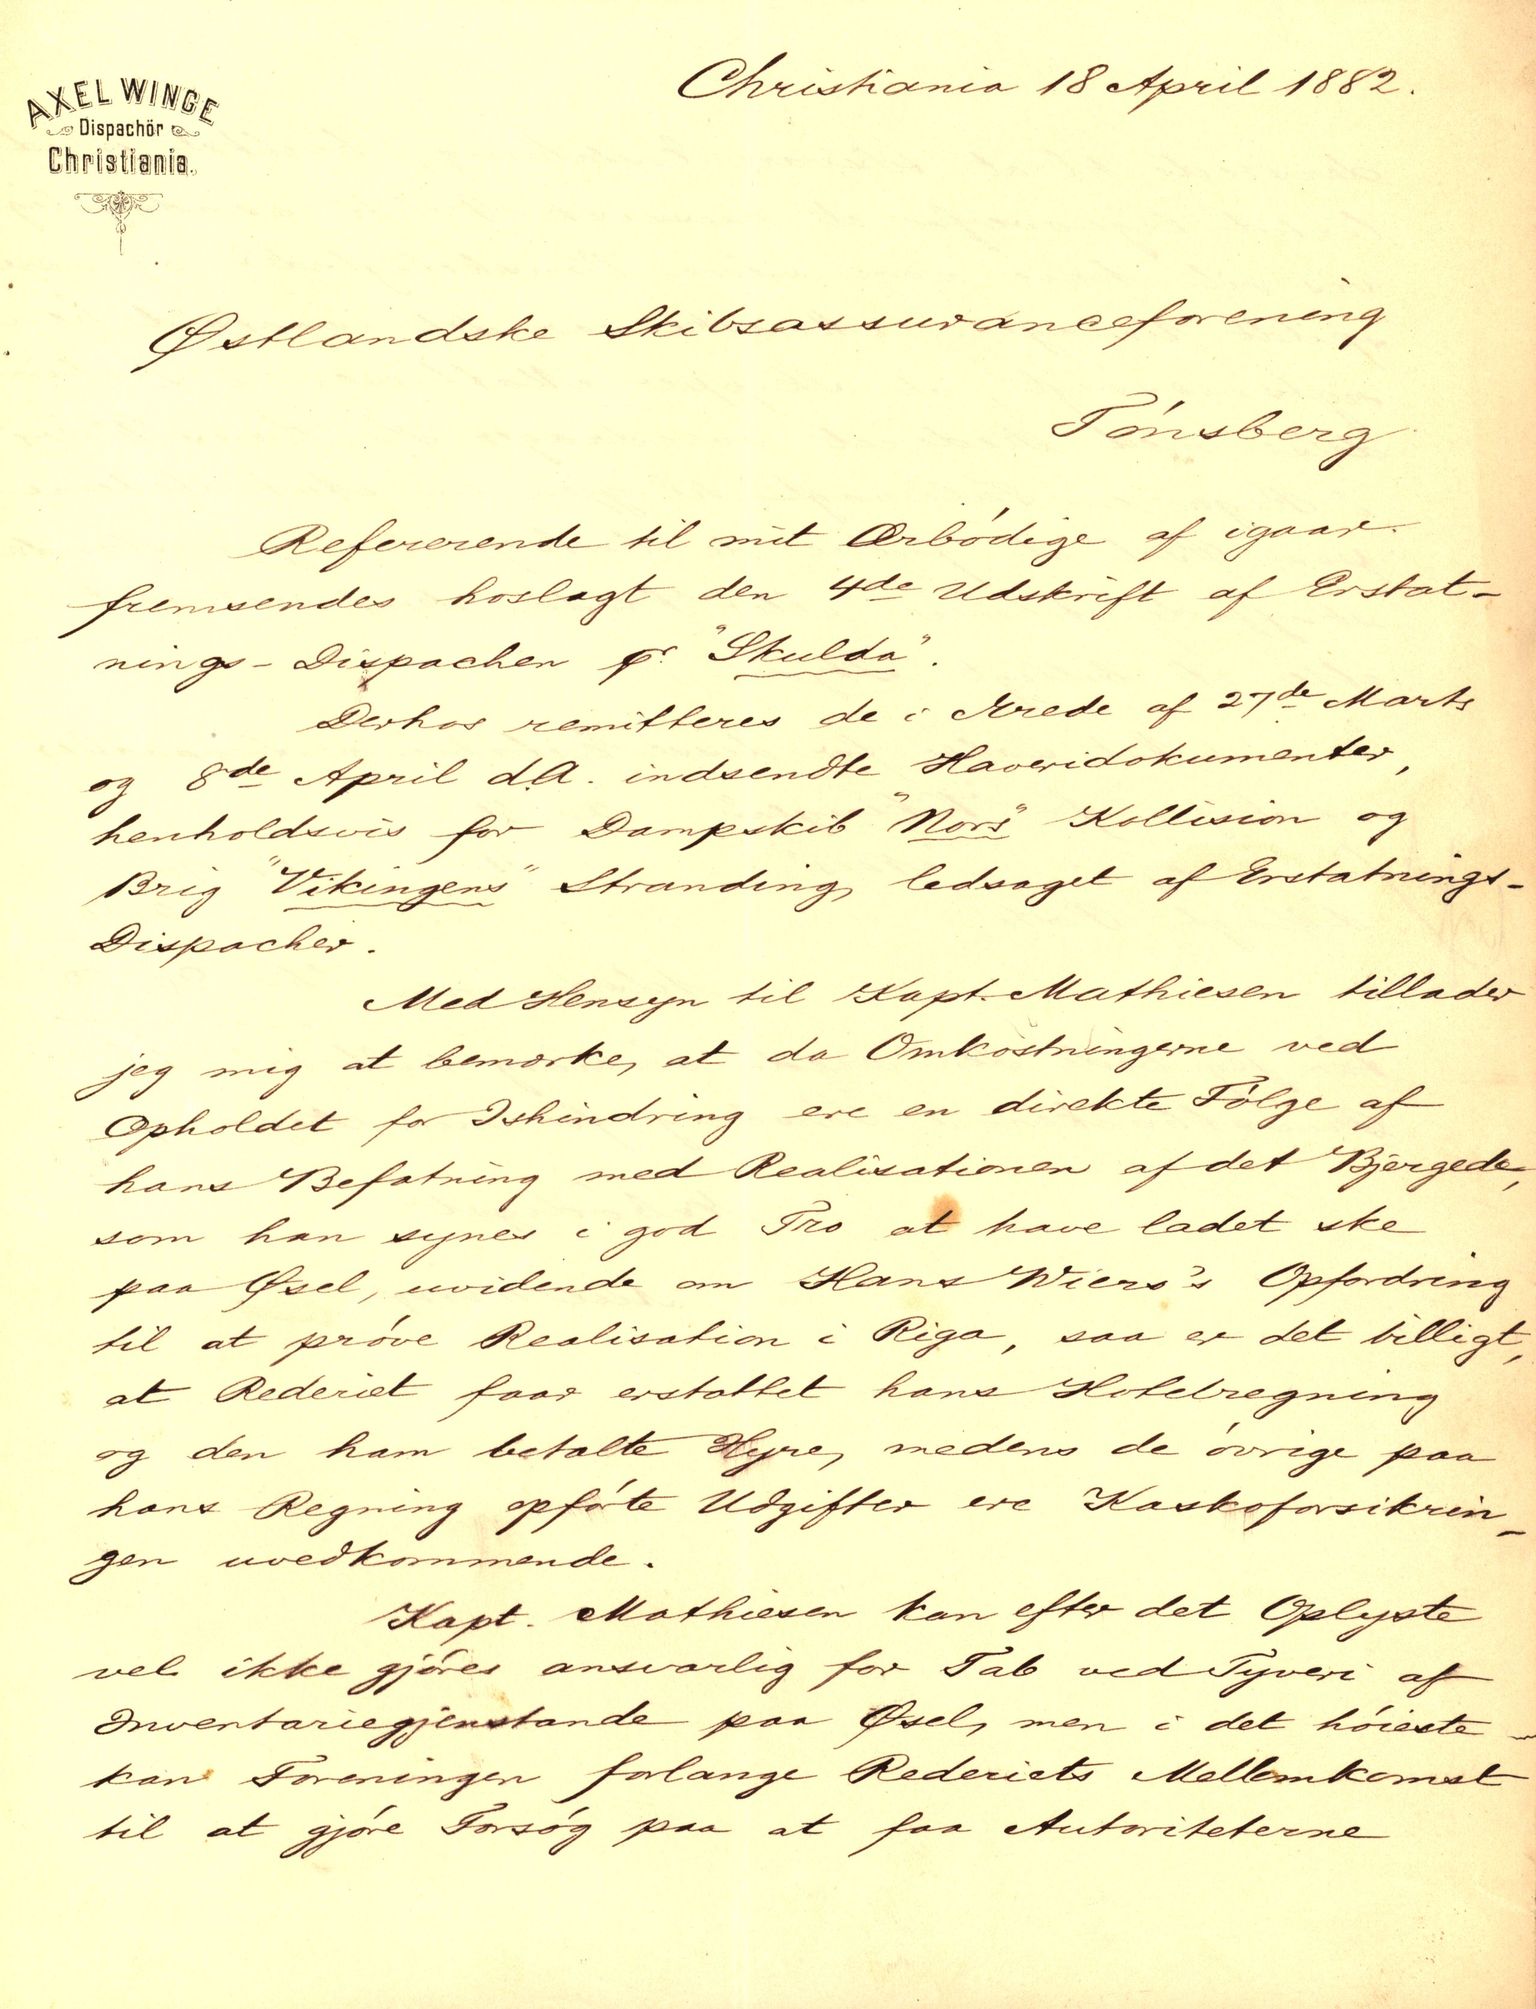 AXEL WINGE
Dispachör
Christiania.
Christiania 18 April 1882.
Østlandske Skibsassuranceforening
Tönsberg
Refererende til mit Ærbödige af igaar
fremsendes hoslagt den 4de Udskrift af Erstat-
nings-Dispachen pr. "Skulda".
Derhos remitteres de i Ærede af 27de Marts
og 8de April d.A. indsendte Havaridokumenter,
henholdsvis for Dampskib "Nors" Kollision og
Brig "Vikingens" Stranding, ledsaget af Erstatnings-
Dispacher.
Med Hensyn til Kapt. Mathiesen tillader
jeg mig at bemærke, at da Omkostningerne ved
Opholdet for Ishindring ere en direkte Fölge af
hans Befatning med Realisationen af det Bjergede,
som han synes i god Tro at have ladet ske
paa Øsel, uvidende om Hans Wiers's Opfordring
til at pröve Realisation i Riga, saa er det billigt,
at Rederiet faar erstattet hans Hotelregning
og den ham betalte Hyre, medens de övrige paa
hans Regning opförte Udgifter ere Kaskoforsikrin-
gen uvedkommende.
Kapt. Mathiesen kan efter det Oplyste
vel ikke gjöres ansvarlig for Tab ved Tyveri af
Inventariegjenstande paa Øsel, men i det höieste
kan Foreningen forlange Rederiets Mellemkomst
til at gjöre Forsög paa at faa Autoriteterne